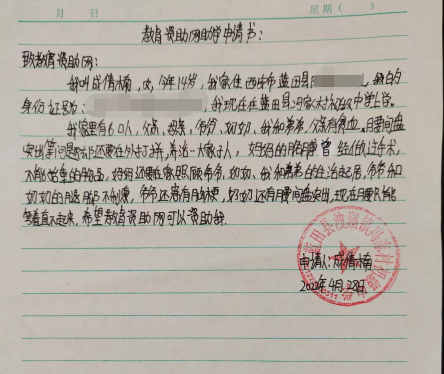 月 日 星期（ ）
教育资助网助学申请书：
致教育资助网：
我叫成倩楠，女，今年14岁，我家住西安市蓝田县，我的
身份证号为：，我现在在蓝田县冯家村初级中学上学。
我家里有6口人，父亲、母亲、爷爷、奶奶、我和弟弟，父亲有贫血、腰间盘
突出等问题，却还要在外打拼，养活一大家子人，妈妈的胳膊曾经做过手术，
不能提重的物品，妈妈还要在家照顾爷爷、奶奶、我和弟弟的生活起居，爷爷和
奶奶的腿脚都不利索，爷爷还患有脑梗，奶奶还有腰间盘突出，现在腰不能
直起来，希望教育资助网可以资助我。
申请人：成倩楠
2022年4月28日
蓝田县 冯家村初级中学